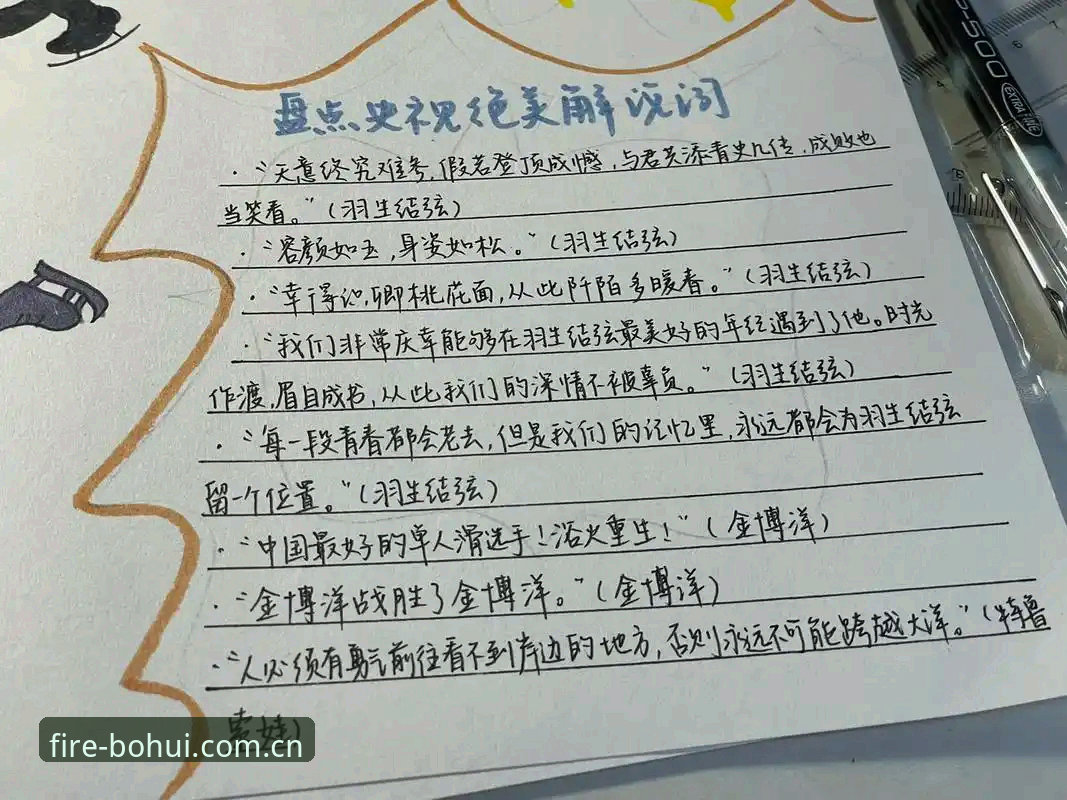 盘点央视绝美解说词
·“天意终究难参,假若登顶成憾,与君共添青史几传,成败也
当笑看。”(羽生结弦)
“容颜如玉,身姿如松。”(羽生结弦)
·“幸得识卿桃花面,从此阡陌多暖春。”(羽生结弦)
·“我们非常庆幸能够在羽生结弦最美好的年纪遇到了他。时光
作渡,眉目成书,从此我们的深情不被辜负。”(羽生结弦)
·“每一段青春都会老去,但是我们的记忆里,永远都会为羽生结弦
留一个位置。”(羽生结弦)
·“中国最好的单人滑选手!浴火重生!”(金博洋)
·“金博洋战胜了金博洋。”(金博洋)
·“人必须有勇气前往看不到岸边的地方,否则永远不可能跨越大洋。”(特鲁
索娃)
-500
EXTRA FINE
fire-bohui.com.cn